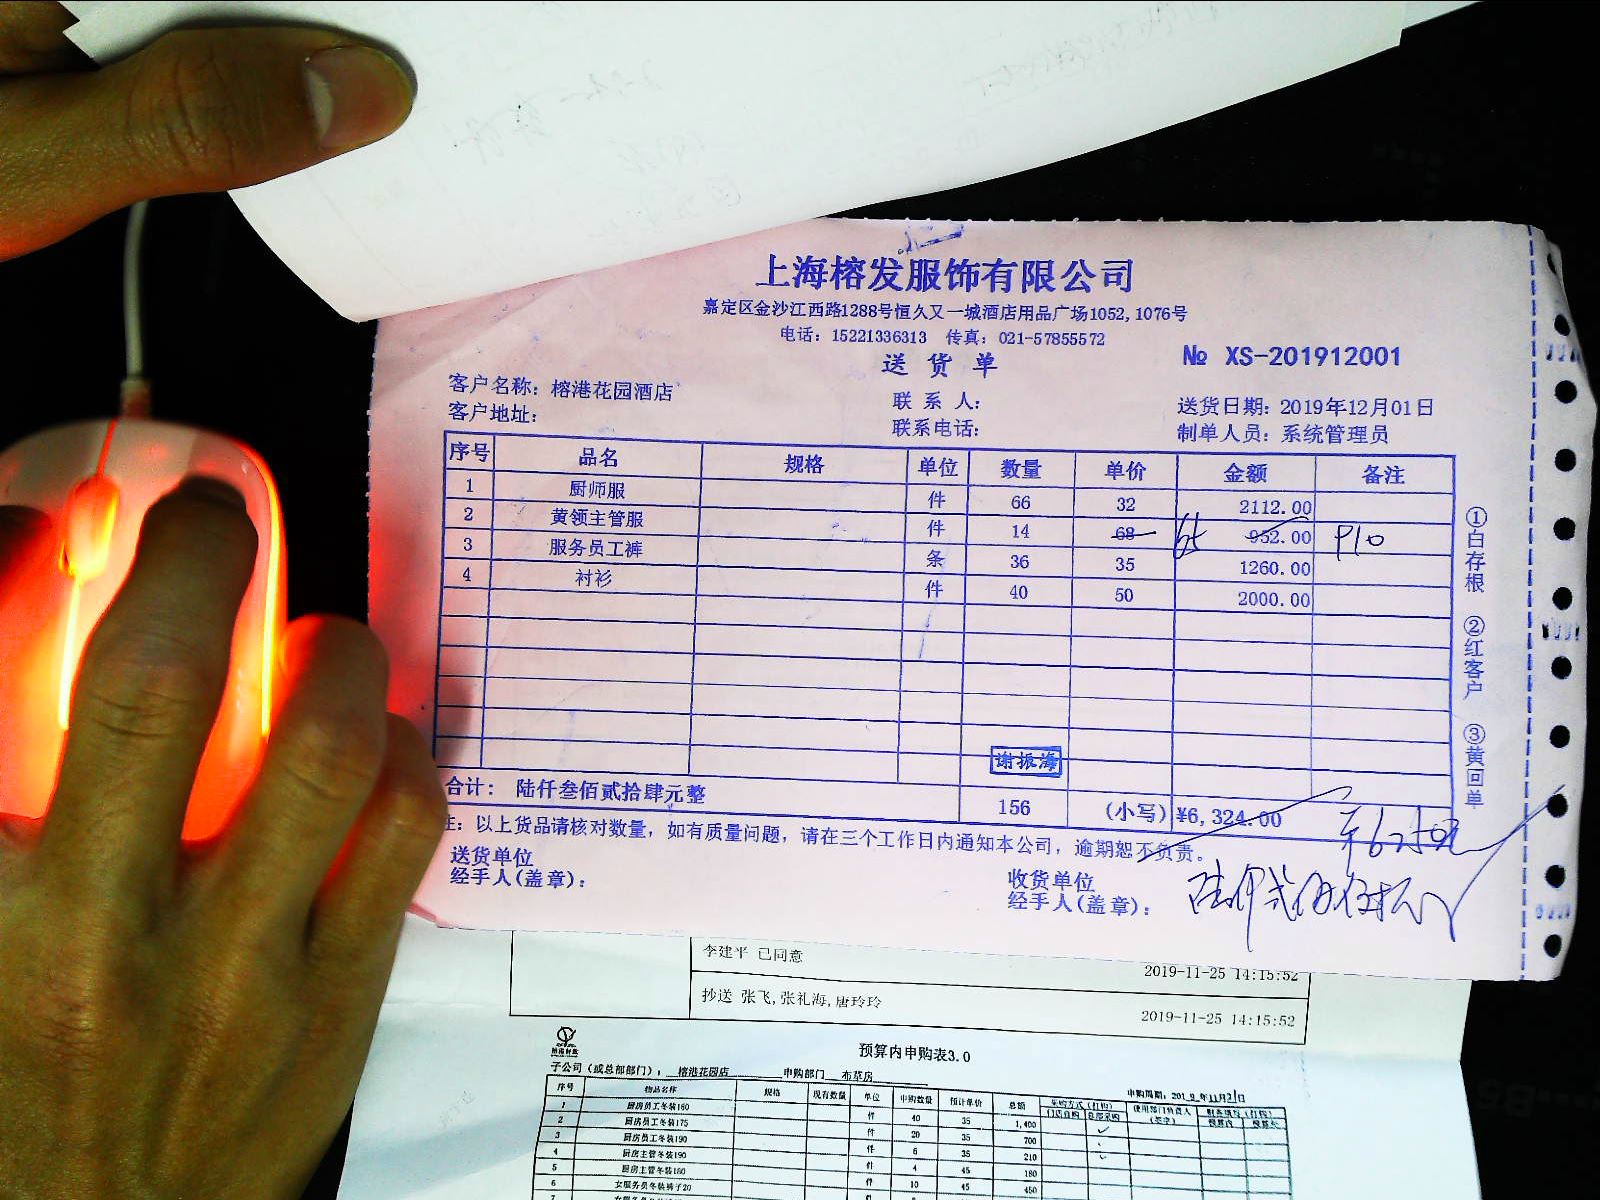 上海榕发服饰有限公司
嘉定区金沙江西路1288号恒久又一城酒店用品广场1052,1076号
电话：15221336313 传真：021-57855572
送货单
№ XS-201912001
客户名称：榕港花园酒店
联系人：
送货日期：2019年12月01日
客户地址：
联系电话：
制单人员：系统管理员
序号 品名 规格 单位 数量 单价 金额 备注
1 厨师服 件 66 32 2112.00
2 黄领主管服 件 14 68 65 952.00 910
3 服务员工裤 条 36 35 1260.00
4 衬衫 件 40 50 2000.00
①白存根 ②红客户 ③黄回单
谢振海
合计： 陆仟叁佰贰拾肆元整 156 (小写) ¥6,324.00
注：以上货品请核对数量，如有质量问题，请在三个工作日内通知本公司，逾期恕不负责。
送货单位
经手人(盖章)：
收货单位
经手人(盖章)：
李建平 已同意 2019-11-25 14:15:52
抄送 张飞,张礼海,唐玲玲 2019-11-25 14:15:52
预算内申购表3.0
子公司（或总部部门）： 榕港花园店 申购部门 布草房 申购周期：2019年11月21日
序号 物品名称 规格 现有数量 单位 申购数量 预计单价 总额
1 厨房员工冬装160 件 40 35 1,400
2 厨房员工冬装175 件 20 35 700
3 厨房员工冬装190 件 6 35 210
4 厨房主管冬装190 件 4 45 180
5 厨房主管冬装180 件 10 45 450
6 女服务员冬装裤子20
7